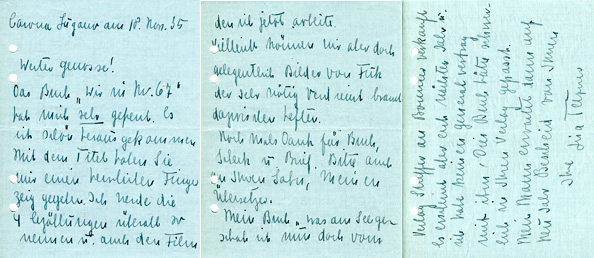 Carona Lugano am 18. Nov. 35
Werter Genosse!
Das Buch „Wir v. Nr. 67"
hat mich sehr gefreut. Es
ist schön herausgekommen
Mit dem Titel haben Sie
mir einen herrlichen Finger
zeig gegeben. Ich werde die
4 Erzählungen überall so
nennen u. auch den Film
den ich jetzt arbeite.
Vielleicht können wir aber doch
gelegentlich Bilder von Fuk
der sehr nötig Verdienst braucht
dazwischen heften.
Nochmals Dank für Buch,
Scheck u. Brief. Bitte auch
an Ihren Sohn, meinen
Übersetzer.
Mein Buch „was am See ge-
schah ist nun doch vom
Verlag an Bonniers verkauft
es erscheint aber erst nächstes Jahr u.
ich habe meinen Generalvertrag
mit ihm. Dies Buch hätte schöner
sich in Ihren Verlag gepasst.
Mein Mann erwartet dann auf
Neu Jahr Bescheid von Ihnen
Ihre Lisa Tetzner